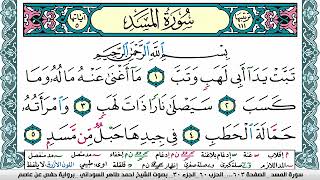 ترتيبها ١١١
سُورَةُ المَسَدِ
آياتها ٥
بِسْمِ اللَّهِ الرَّحْمَٰنِ الرَّحِيمِ
تَبَّتْ يَدَا أَبِي لَهَبٍ وَتَبَّ ١ مَا أَغْنَىٰ عَنْهُ مَالُهُ وَمَا
كَسَبَ ٢ سَيَصْلَىٰ نَارًا ذَاتَ لَهَبٍ ٣ وَامْرَأَتُهُ
حَمَّالَةَ الْحَطَبِ ٤ فِي جِيدِهَا حَبْلٌ مِّن مَّسَدٍ ٥
سورة المسد الصفحة ٦٠٣ الحزب ٦٠ الجزء ٣٠ بصوت الشيخ احمد طاهر السوداني رواية حفص عن عاصم